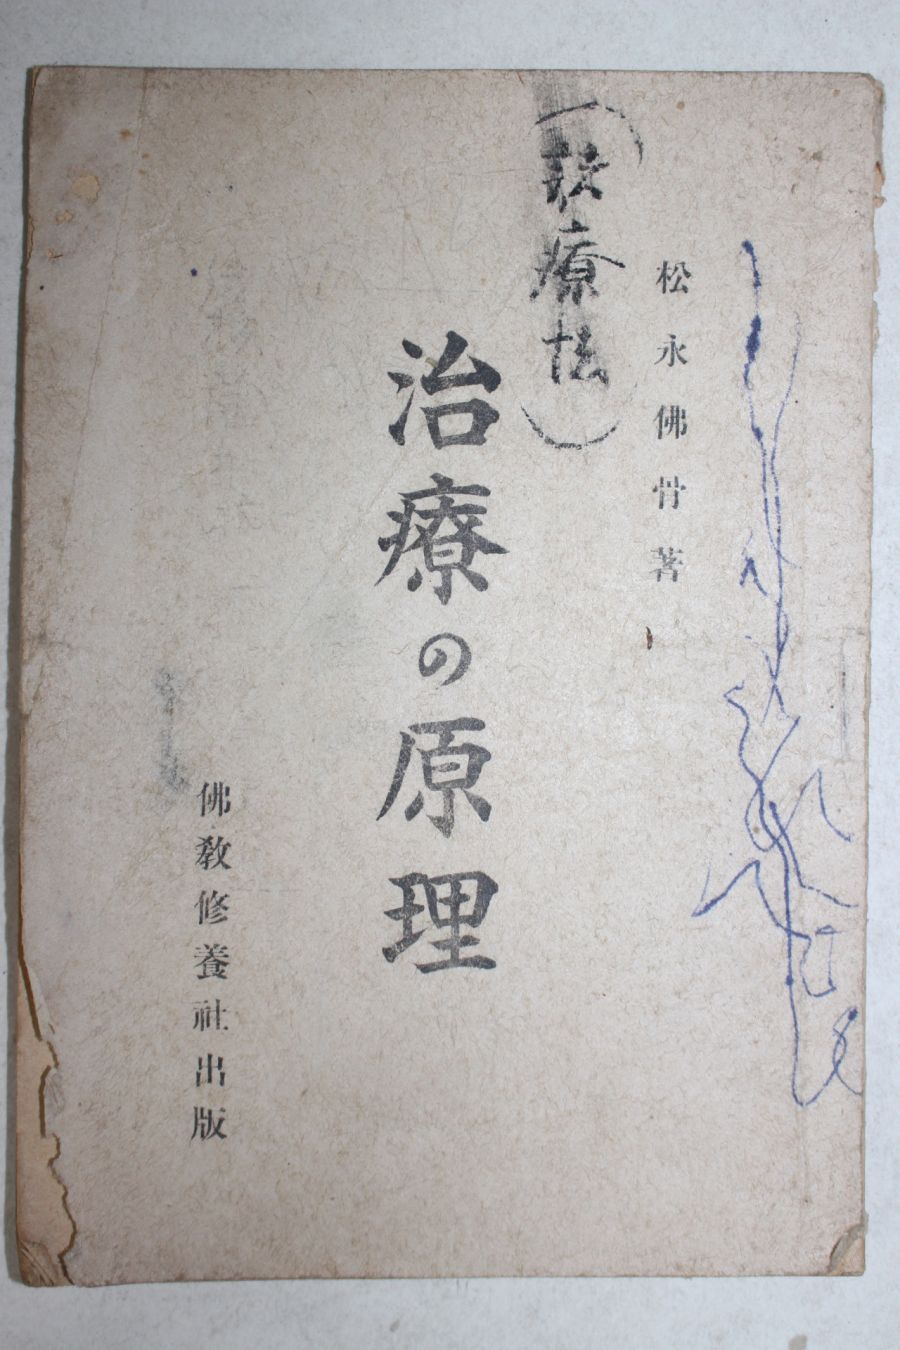 松永佛骨著
療法
治療の原理
佛教修養社出版